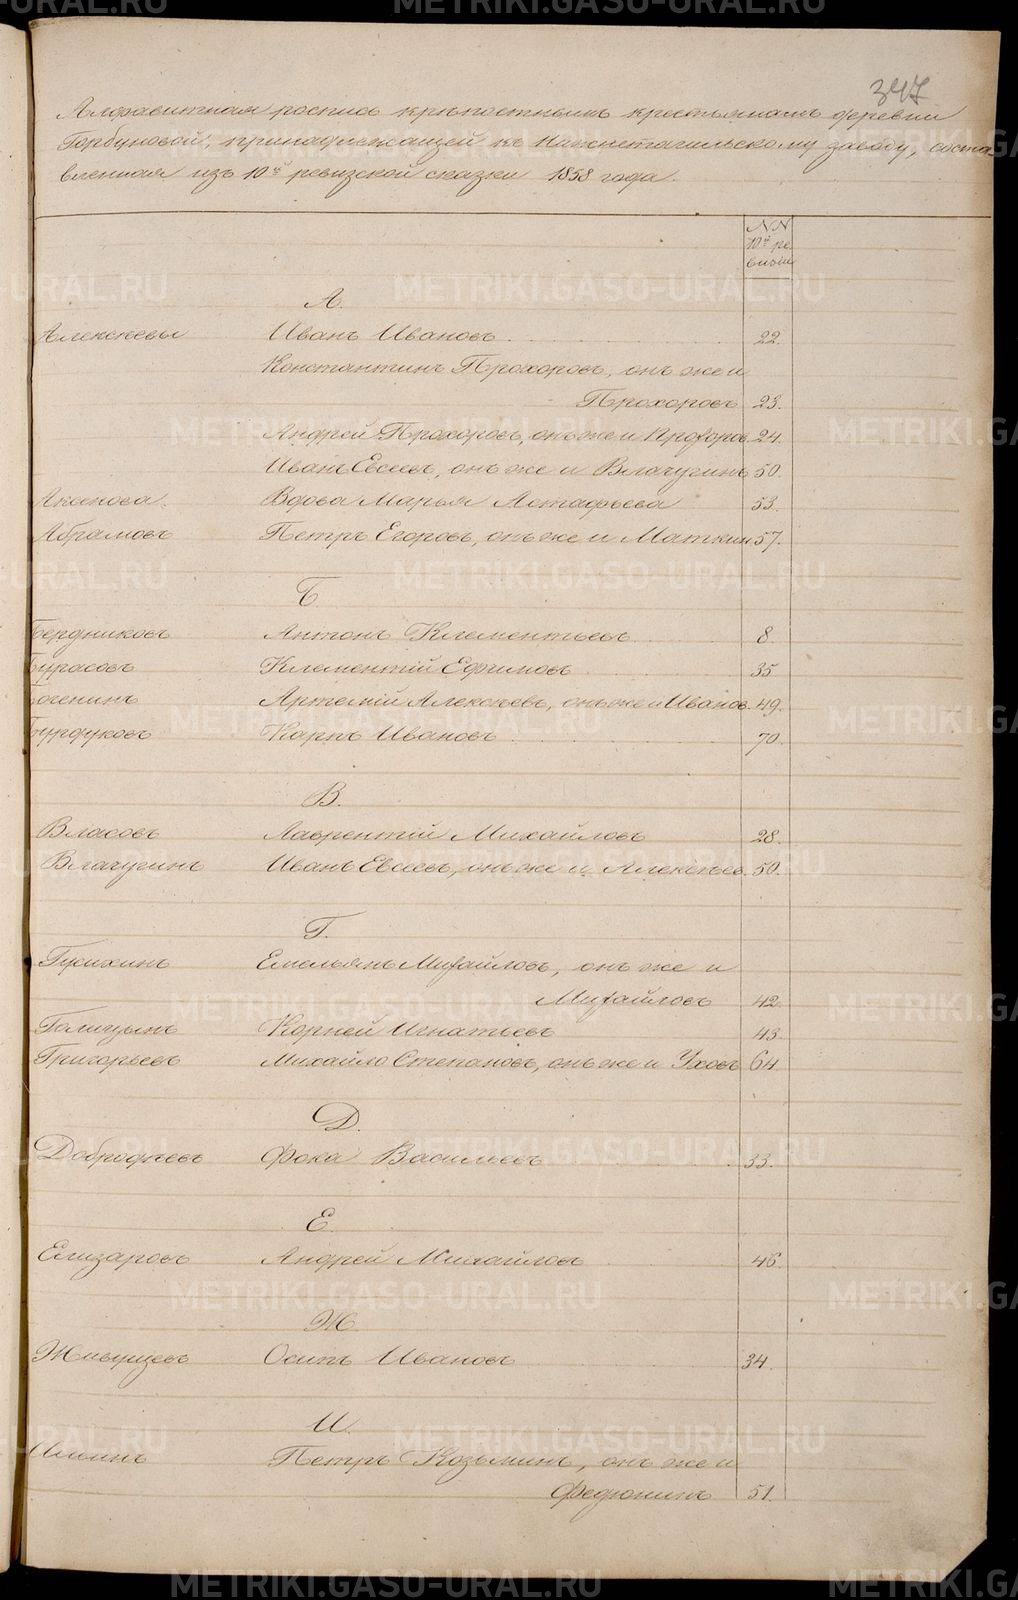 347
Алфавитная роспись крѣпостнымъ крестьянамъ деревни
Горбуновой, принадлежащей къ Нижнетагильскому заводу, соста
вленная изъ 10й ревизской сказки 1858 года.
NN
10й ре
визiи
А.
Алексѣевы Иванъ Ивановъ 22.
Константинъ Прохоровъ, онъ же и
Прохоровъ 23.
Андрей Прохоровъ, онъ же и Прохоровъ 24.
Иванъ Евсеевъ, онъ же и Влачугинъ 50.
Аксенова. Вдова Марья Астафьева 53.
Абрамовъ Петръ Егоровъ, онъ же и Маткин 57.
Б.
Бердниковъ Антонъ Клементьевъ 8
Бурасовъ Клементiй Ефимовъ 35
Артемiй Алексѣевъ, онъ же и Иванов. 49.
Бурдуковъ Карпъ Ивановъ 70.
В.
Власовъ Лаврентiй Михайловъ 28.
Влачугинъ Иванъ Евсеевъ, онъ же и Алексѣев. 50.
Г.
Гусихинъ Емельянъ Михайловъ, онъ же и
Михайловъ 42.
Голицынъ Корней Игнатьевъ 43.
Григорьевъ Михайло Степановъ, онъ же и Уховъ 64.
Д.
Добродѣевъ Фока Васильевъ 33.
Е.
Елизаровъ Андрей Михайловъ 46.
Ж.
Осипъ Ивановъ 34.
И.
Ильинъ Петръ Козьминъ, онъ же и
Федюнинъ 51.
METRIKI.GASO-URAL.RU